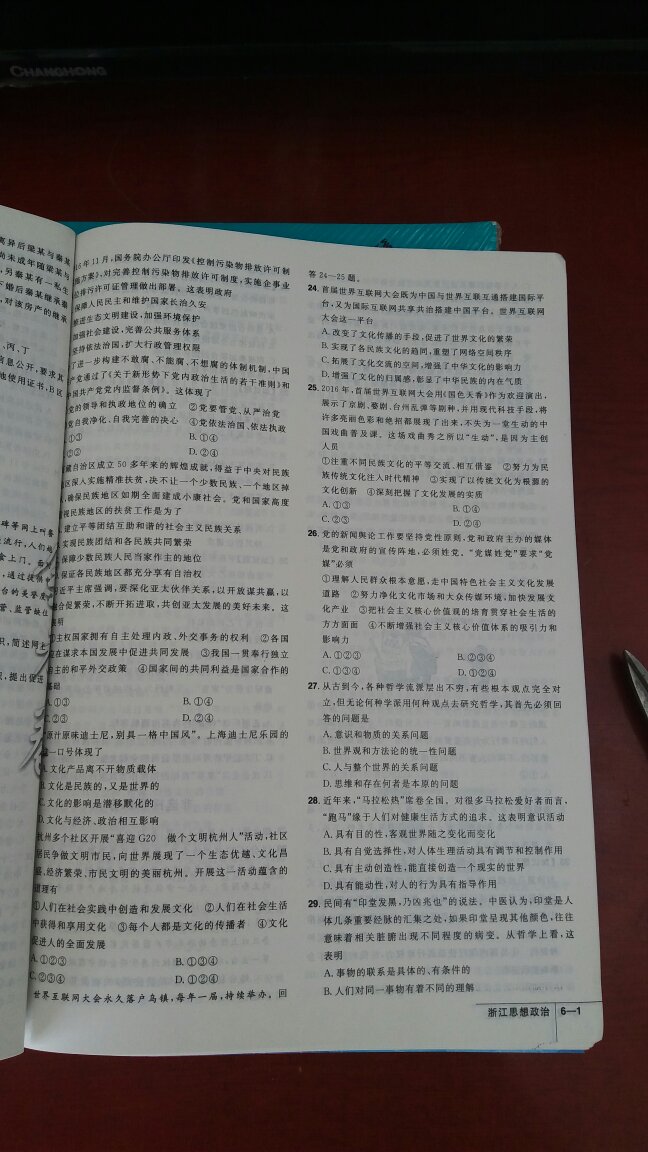 CHANGHONG
离异后梁某与秦某
尚未成年随梁某与
,另秦某有一私生
下婚后秦某继承秦
,对该房产的继承
、丙、丁
信息公开,要求其
他使用证书,B区
碑等网上叫餐
流行,人们越
食上门。
,通过提供
台的美誉度
管、监管缺位
识,简述网上
识,提出促进
16年11月,国务院办公厅印发《控制污染物排放许可制
施方案》,对完善控制污染物排放许可制度,实施企事业
位排污许可证管理做出部署。这表明政府
保障人民民主和维护国家长治久安
推进生态文明建设,加强环境保护
加强社会建设,完善公共服务体系
坚持依法治国,扩大行政管理权限
了进一步构建不敢腐、不能腐、不想腐的体制机制,中国
产党通过了《关于新形势下党内政治生活的若干准则》和
中国共产党党内监督条例》。这体现了
党的领导和执政地位的确立 ②党要管党、从严治党
党自我净化、自我完善的决心 ④党依法治国、依法执政
①③ B.①④
②③ D.②④
藏自治区成立50多年来的辉煌成就,得益于中央对民族
区深入实施精准扶贫,决不让一个少数民族、一个地区掉
,确保民族地区如期全面建成小康社会。党和国家高度
视民族地区的扶贫工作是为了
建立平等团结互助和谐的社会主义民族关系
实现民族团结和各民族共同繁荣
保障少数民族人民当家作主的地位
保证各民族地区都充分享有自治权
习近平主席强调,要深化亚太伙伴关系,以开放谋共赢,以
融合促繁荣,不断开拓进取,共创亚太发展的美好未来。这
表明
①主权国家拥有自主处理内政、外交事务的权利 ②各国
应在谋求本国发展中促进共同发展 ③我国一贯奉行独立
自主的和平外交政策 ④国家间的共同利益是国家合作的
基础
A.①③ B.①④
C.②③ D.②④
“原汁原味迪士尼,别具一格中国风”。上海迪士尼乐园的
这一口号体现了
A.文化产品离不开物质载体
B.文化是民族的,又是世界的
C.文化的影响是潜移默化的
D.文化与经济、政治相互影响
杭州多个社区开展“喜迎G20 做个文明杭州人”活动,社区
居民争做文明市民,向世界展现了一个生态优越、文化昌
盛、经济繁荣、市民文明的美丽杭州。开展这一活动蕴含的
道理有
①人们在社会实践中创造和发展文化 ②人们在社会生活
中获得和享用文化 ③每个人都是文化的传播者 ④文化
促进人的全面发展
A.①②③ B.①③④
C.②③④ D.①②④
世界互联网大会永久落户乌镇,每年一届,持续举办。回
答24—25题。
24.首届世界互联网大会既为中国与世界互联互通搭建国际平
台,又为国际互联网共享共治搭建中国平台。世界互联网
大会这一平台
A.改变了文化传播的手段,促进了世界文化的繁荣
B.实现了各民族文化的趋同,重塑了网络空间秩序
C.拓展了文化交流的空间,增强了中华文化的影响力
D.增强了文化的归属感,彰显了中华民族的内在气质
25.2016年,首届世界互联网大会用《国色天香》作为欢迎演出,
展示了京剧、婺剧、台州乱弹等剧种,并用现代科技手段,将
许多亮丽色彩和绝招都展现了出来,不失为一堂生动的中
国戏曲普及课。这场戏曲秀之所以“生动”,是因为主创
人员
①注重不同民族文化的平等交流、相互借鉴 ②努力为民
族传统文化注入时代精神 ③实现了以传统文化为根源的
文化创新 ④深刻把握了文化发展的实质
A.①③ B.①④
C.②③ D.②④
26.党的新闻舆论工作要坚持党性原则,党和政府主办的媒体
是党和政府的宣传阵地,必须姓党。“党媒姓党”要求“党
媒”必须
①理解人民群众根本意愿,走中国特色社会主义文化发展
道路 ②努力净化文化市场和大众传媒环境,加快发展文
化产业 ③把社会主义核心价值观的培育贯穿社会生活的
方方面面 ④不断增强社会主义核心价值体系的吸引力和
影响力
A.①②③ B.②③④
C.①③④ D.①②④
27.从古到今,各种哲学流派层出不穷,有些根本观点完全对
立,但无论何种学派用何种观点去研究哲学,其首先必须回
答的问题是
A.意识和物质的关系问题
B.世界观和方法论的统一性问题
C.人与整个世界的关系问题
D.思维和存在何者是本原的问题
28.近年来,“马拉松热”席卷全国。对很多马拉松爱好者而言,
“跑马”缘于人们对健康生活方式的追求。这表明意识活动
A.具有目的性,客观世界随之变化而变化
B.具有自觉选择性,对人体生理活动具有调节和控制作用
C.具有主动创造性,能直接创造一个现实的世界
D.具有能动性,对人的行为具有指导作用
29.民间有“印堂发黑,乃凶兆也”的说法。中医认为,印堂是人
体几条重要经脉的汇集之处,如果印堂呈现其他颜色,往往
意味着相关脏腑出现不同程度的病变。从哲学上看,这
表明
A.事物的联系是具体的、有条件的
B.人们对同一事物有着不同的理解
浙江思想政治 6—1